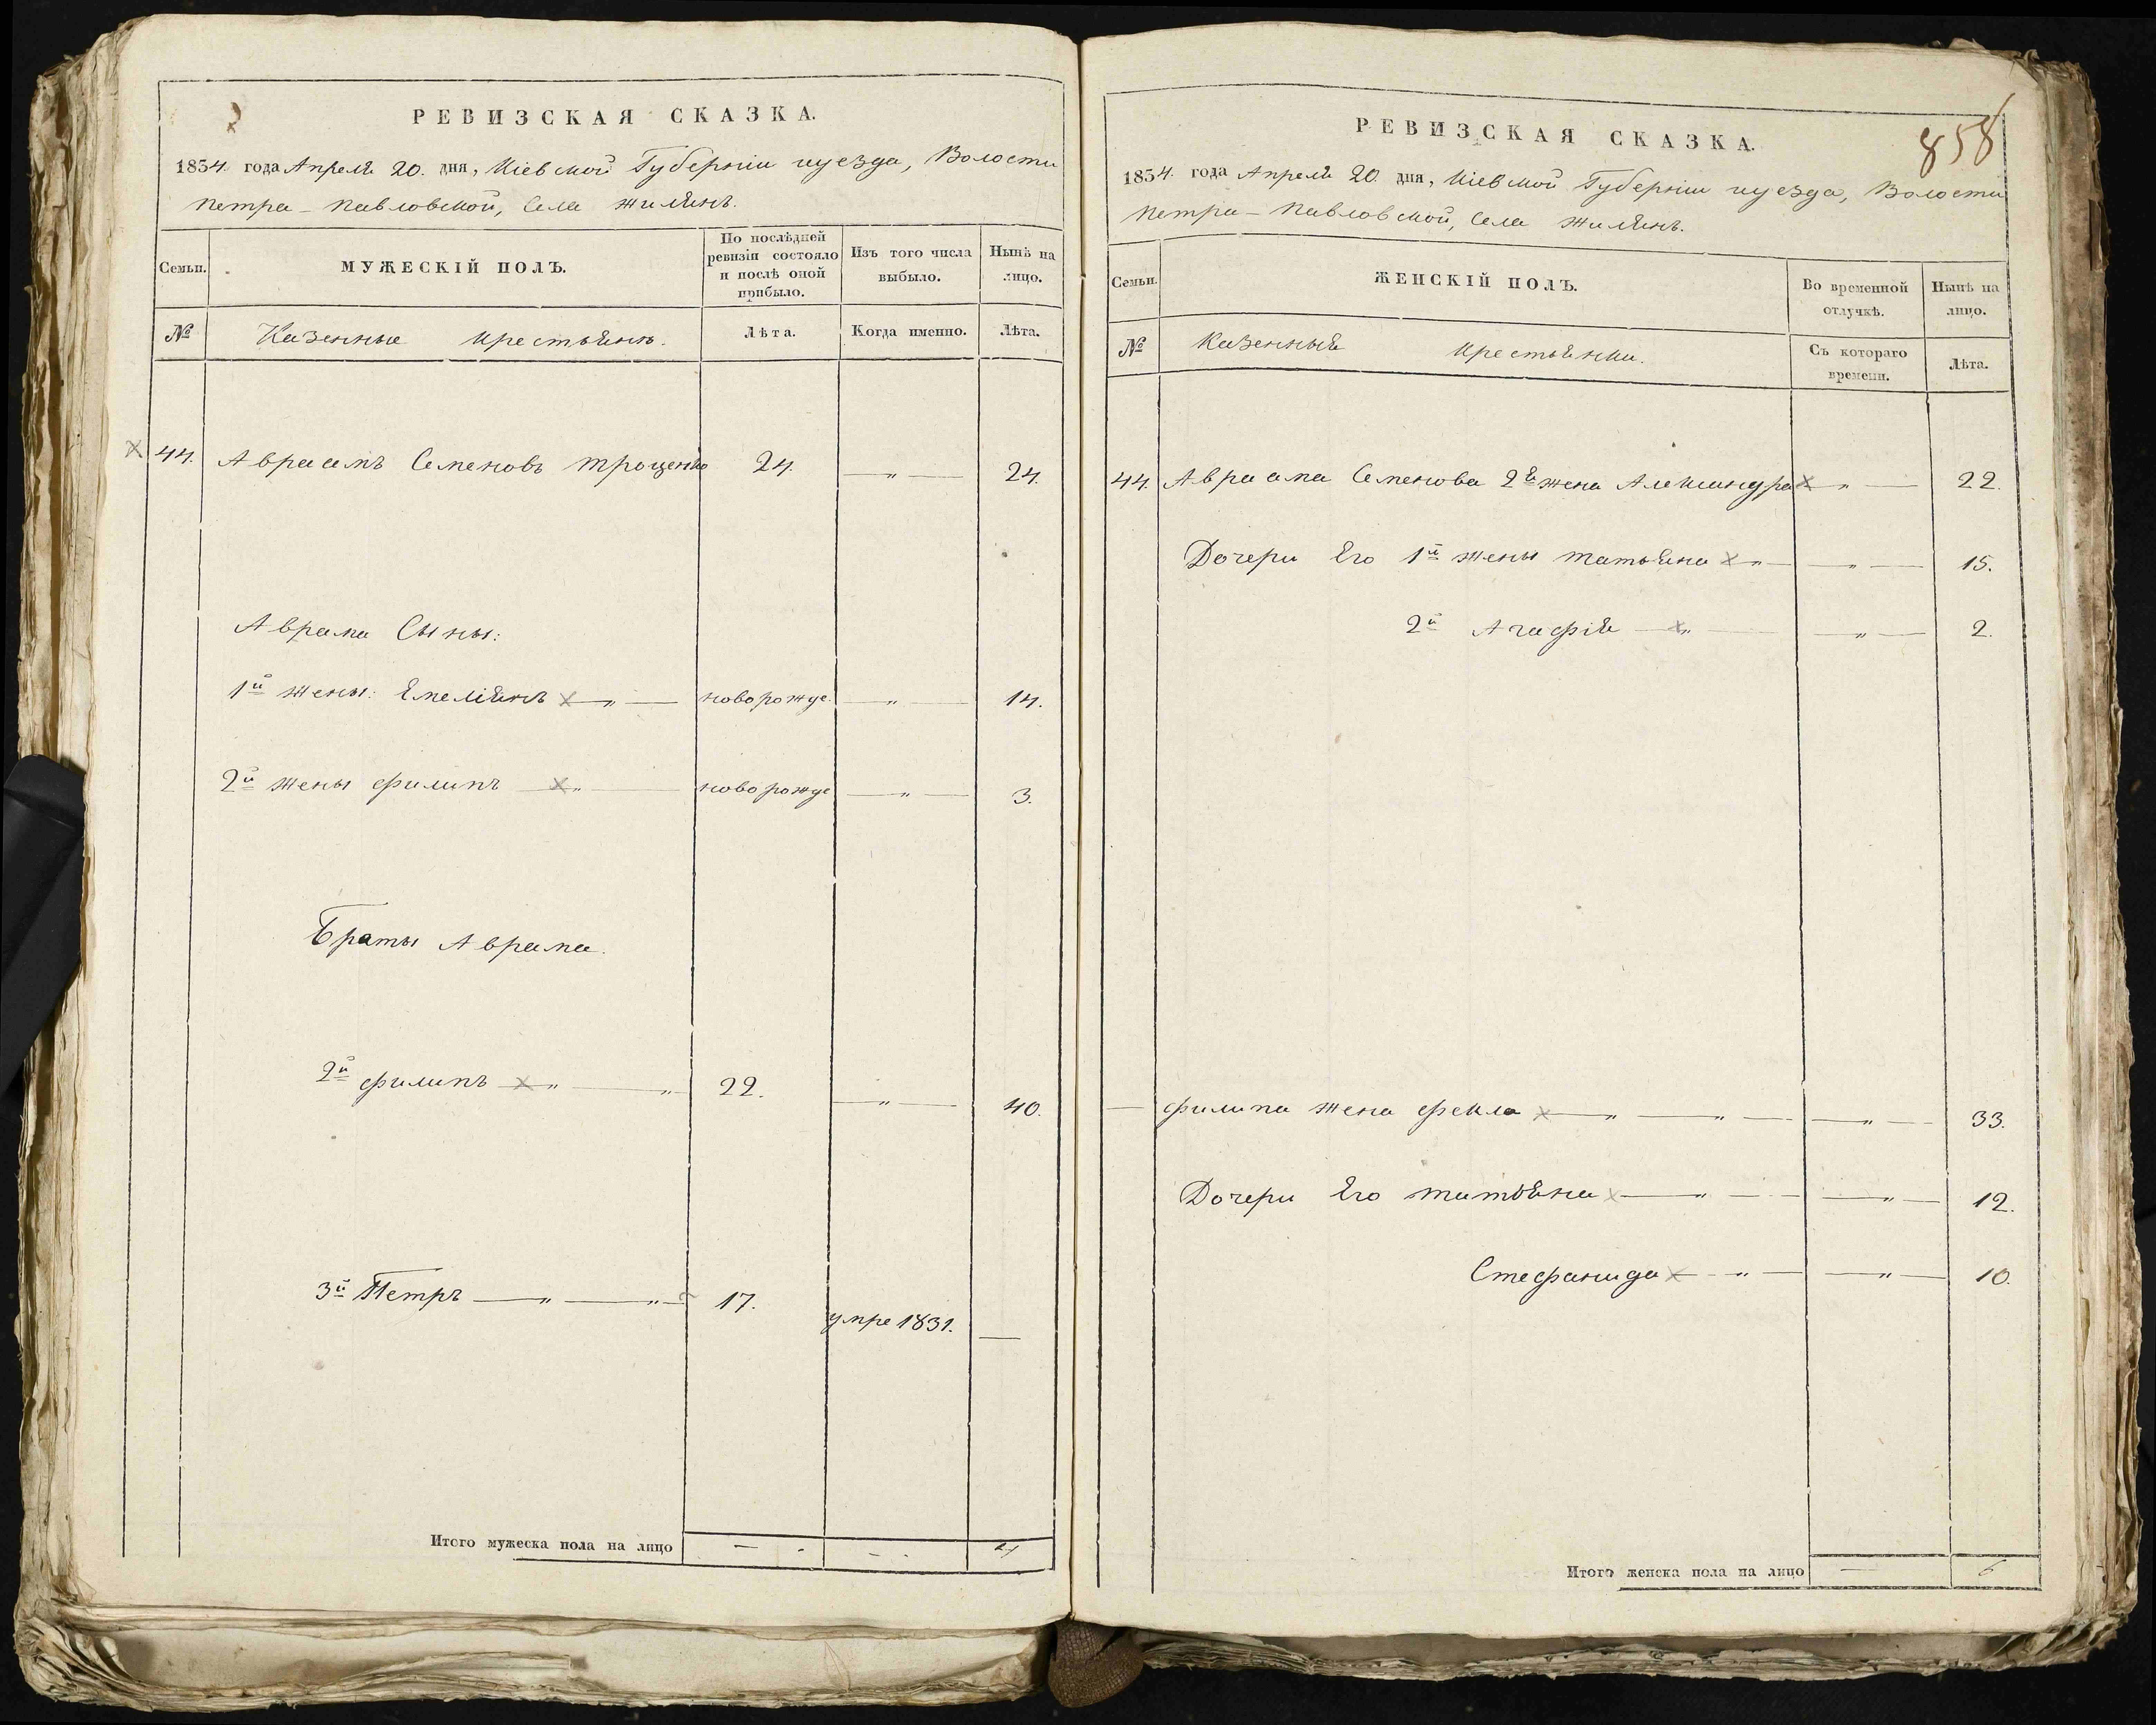 РЕВИЗСКАЯ СКАЗКА.
1834. года Апреля 20. дня, Кіевской Губерніи иуезда, Волости
Петра-Павловской, Села Жилянъ.
Семьи.
МУЖЕСКІЙ ПОЛЪ.
По послѣдней ревизіи состояло и послѣ оной прибыло.
Изъ того числа выбыло.
Нынѣ на лицо.
№
Казенные крестьяне.
Лѣта.
Когда именно.
Лѣта.
44. Авраамъ Семеновъ Троценко 24. — „ — 24.
Аврама Сыны:
1й жены: Емеліянъ — „ — новорожде. — „ — 14.
2й жены Филипъ — „ — новорожде — „ — 3.
Браты Аврама.
2й Филипъ — „ — „ 22. — „ — 40.
3й Петръ — „ — „ — 17. умре 1831. —
Итого мужеска пола на лицо — — 4
858
РЕВИЗСКАЯ СКАЗКА.
1834. года Апреля 20. дня, Кіевской Губерніи иуезда, Волости
Петра-Павловской, Села Жилянъ.
Семьи.
ЖЕНСКІЙ ПОЛЪ.
Во временной отлучкѣ.
Нынѣ на лицо.
№
Казенныя крестьянки.
Съ котораго времени.
Лѣта.
44. Авраама Семенова 2я жена Александра — „ — 22.
Дочери Его 1й жены Татьяна — „ — — „ — 15.
2й Агафія — „ — — „ — 2.
— Филипа жена Фекла — „ — „ — — „ — 33.
Дочери Его Татьяна — „ — — „ — 12.
Стефанида — „ — — „ — 10.
Итого женска пола на лицо — 6